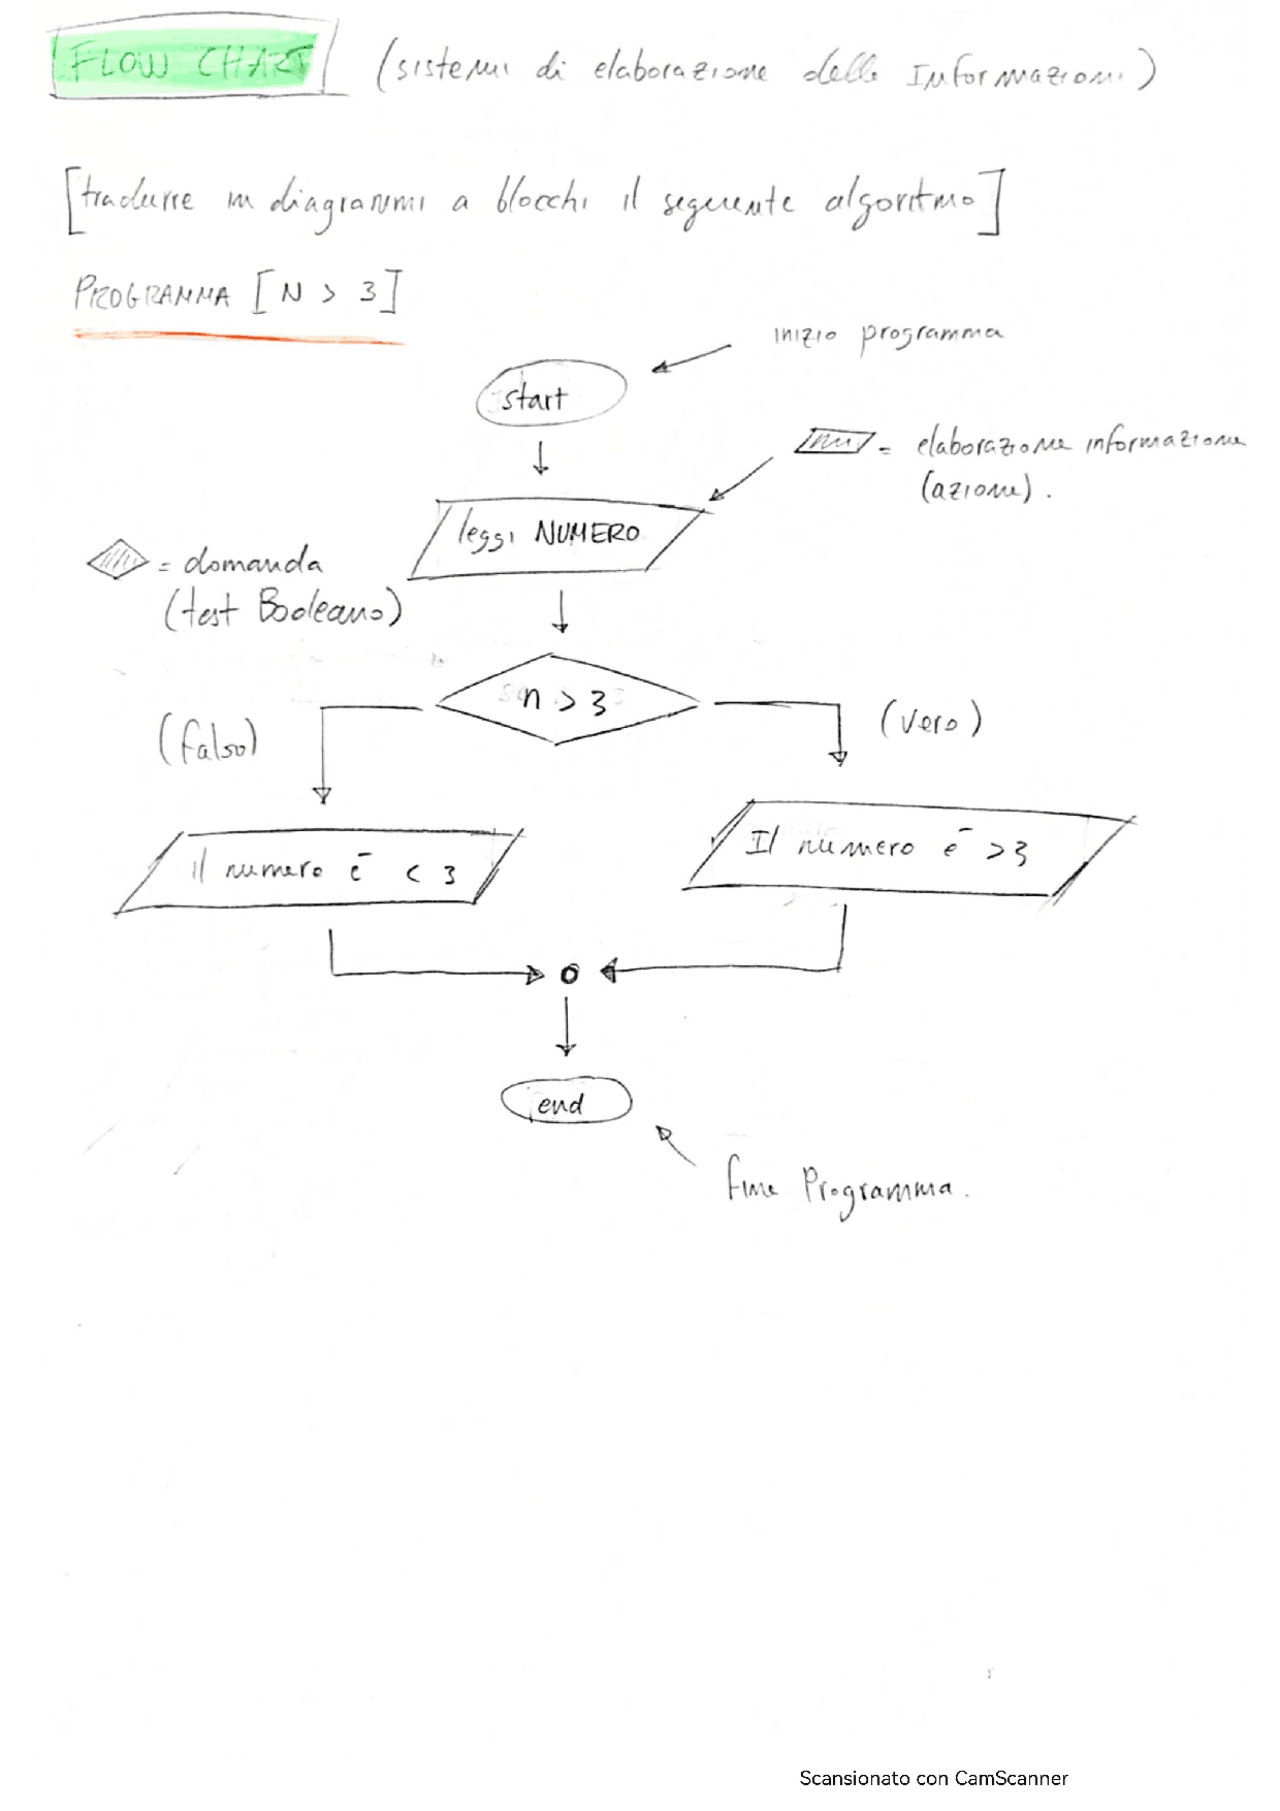 FLOW CHART (sistemi di elaborazione delle Informazioni)
[tradurre in diagrammi a blocchi il seguente algoritmo]
PROGRAMMA [N > 3]
inizio programma
start
= elaborazione informazione
(azione).
leggi NUMERO
= domanda
(test Booleano)
n > 3
(falso)
(vero)
Il numero è > 3
il numero è < 3
end
fine Programma.
Scansionato con CamScanner